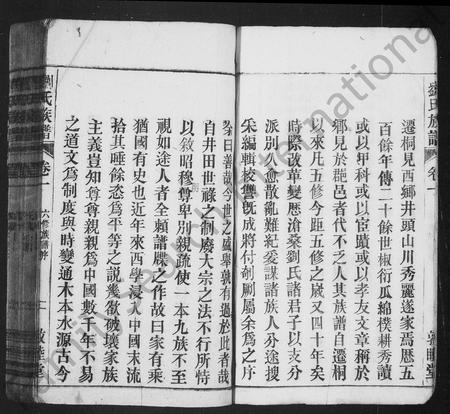 劉氏族譜 卷一
遷桐見西鄉井頭山川秀麗遂家焉歷五
百餘年傳二十餘世椒衍瓜綿樸耕秀讀
或以甲科或以宦蹟或以孝友文章稱於
鄉見於郡邑者代不乏人其族譜自遷桐
以來凡五修今距五修之歲又四十年矣
時際改革變歷滄桑劉氏諸君子以支分
派別久愈散亂難紀爰謀諸族人分途搜
采編輯校讐旣成將付剞劂屬余爲之序
余曰善哉今世之盛舉孰有過於此者哉
自井田世祿之制廢大宗之法不行所恃
以敘昭穆尊卑別親疏使一本九族不至
視如途人者全賴譜牒之作故曰家有乘
猶國有史也近年來西學浸入中國末流
拾其唾餘恣爲平等之說幾欲破壞家族
主義豈知尊尊親親爲中國數千年不易
之道文爲制度與時變通木本水源古今
劉氏族譜 卷一 六修族譜序 一 敦睦堂